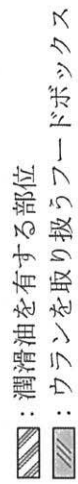 ：潤滑油を有する部位
：ウランを取り扱うフードボックス